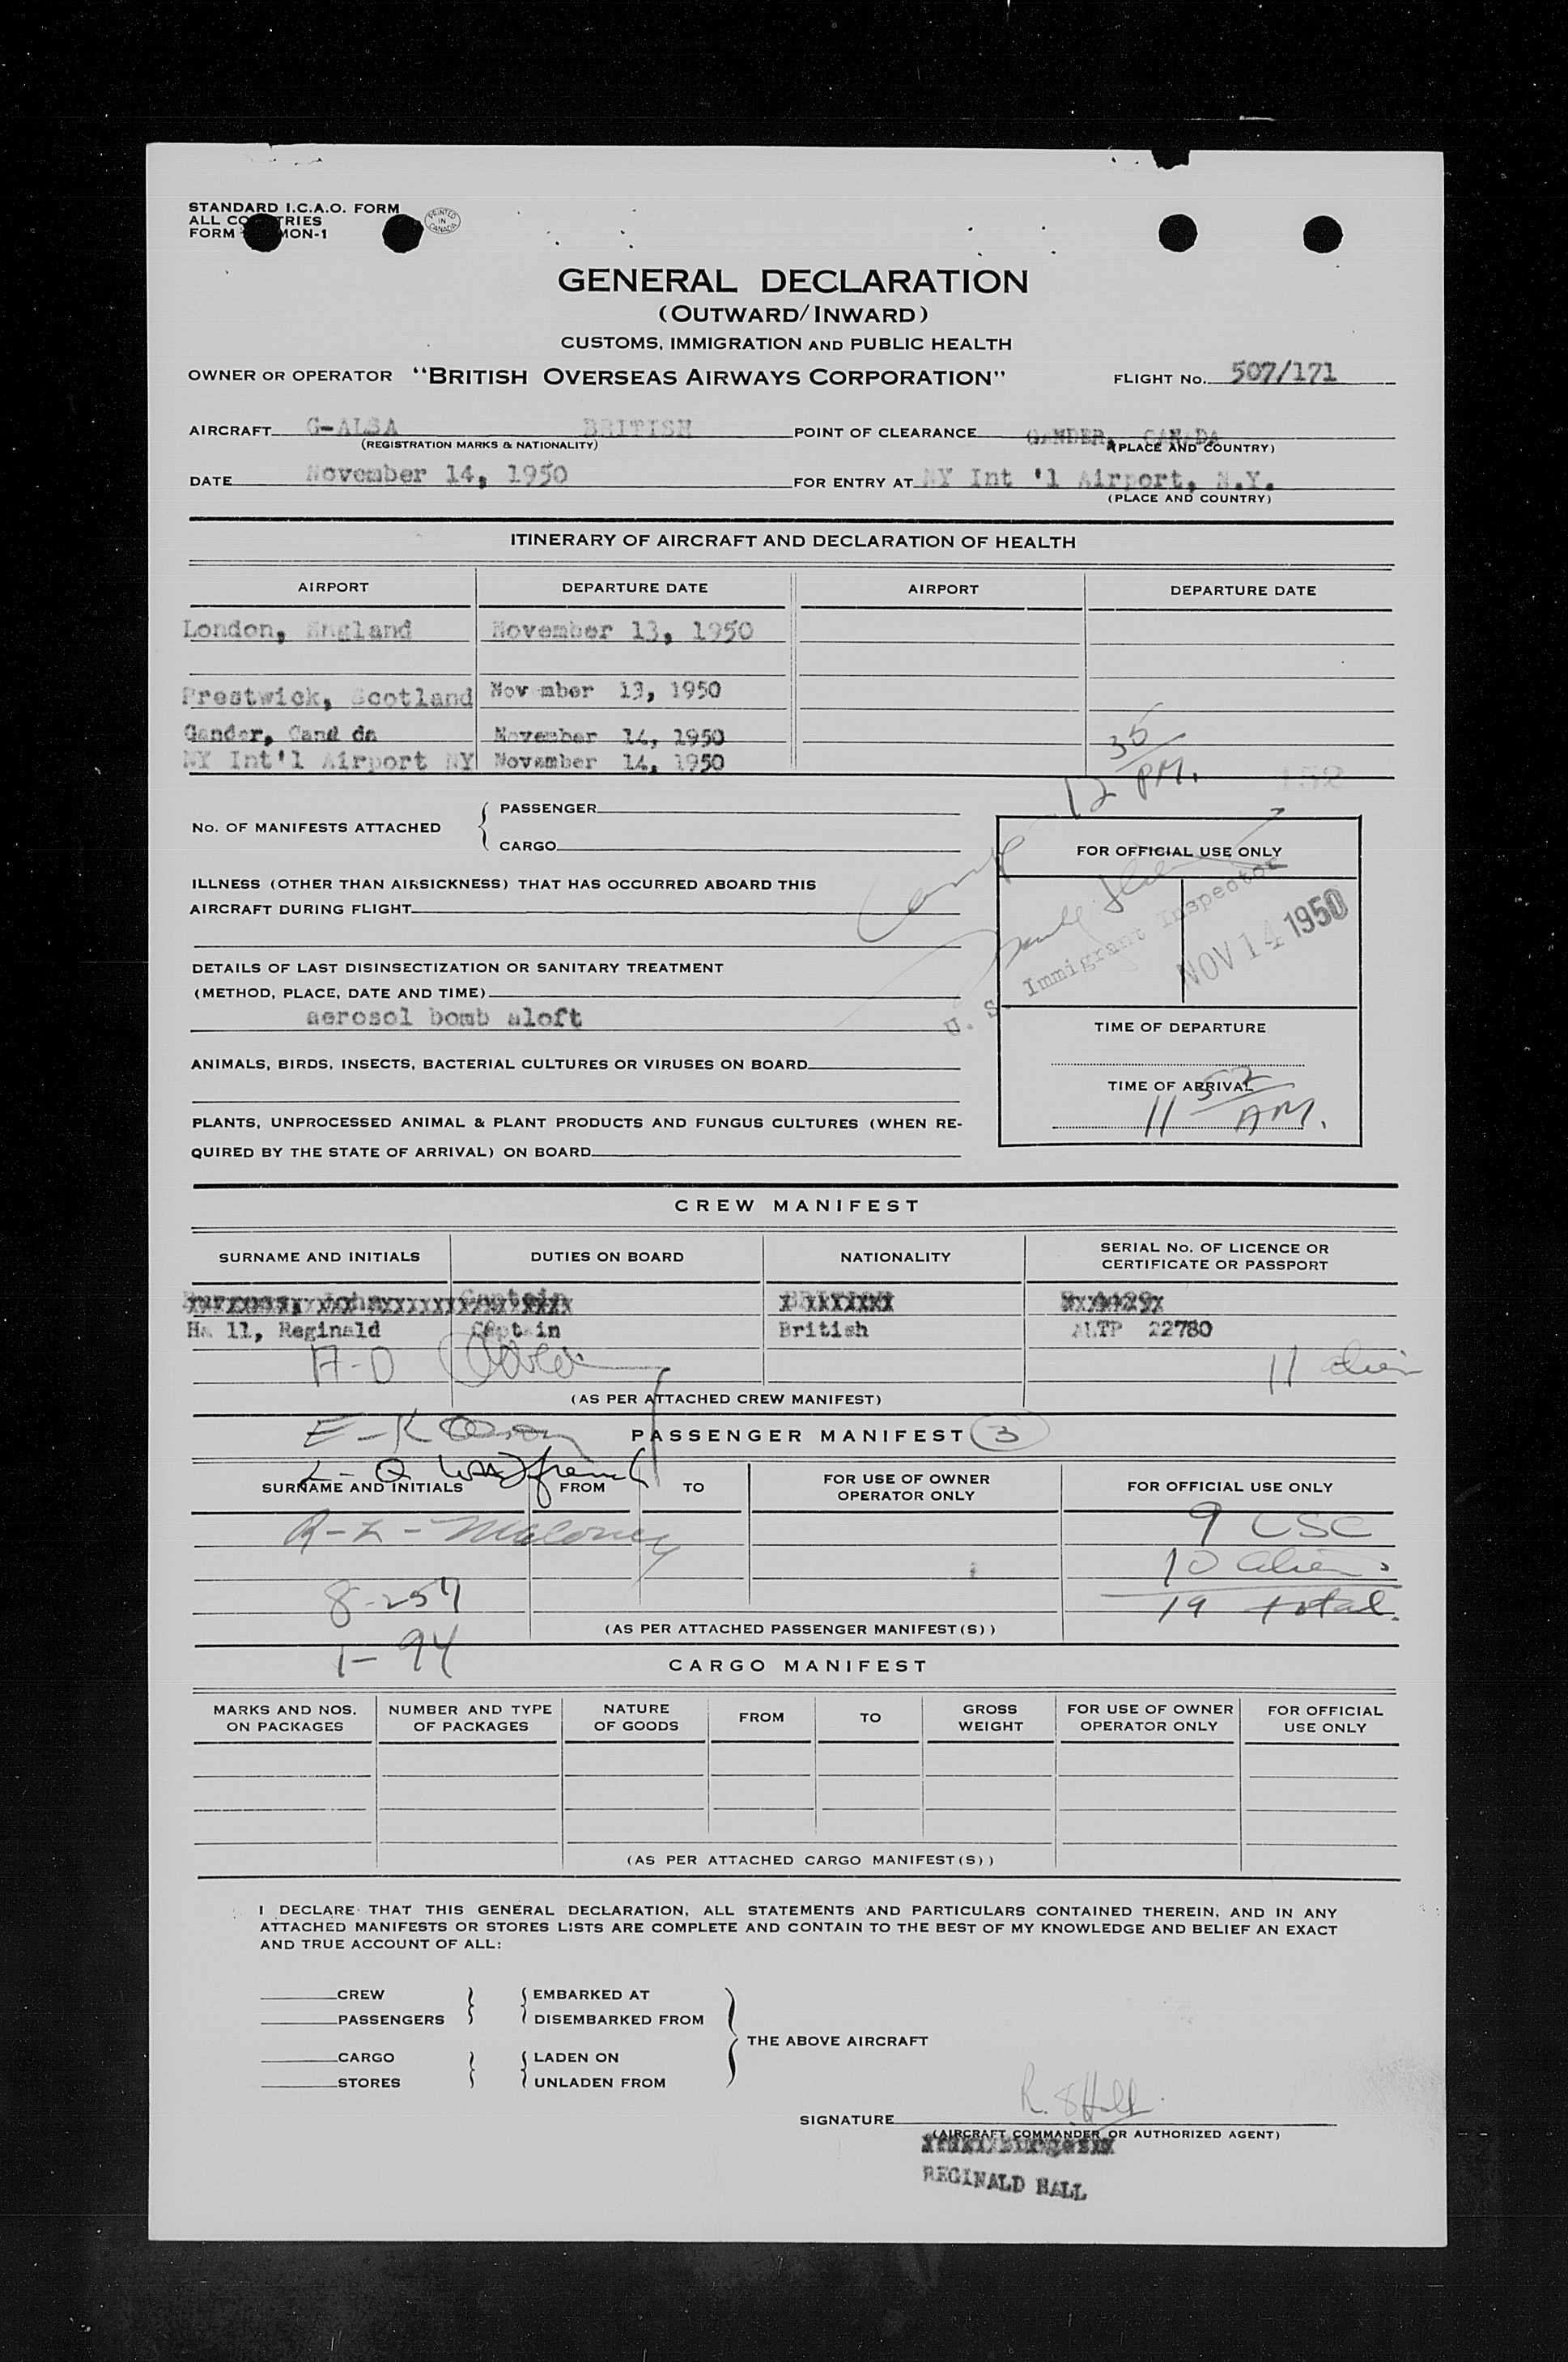 STANDARD I.C.A.O. FORM
ALL COUNTRIES
FORM MON-1
PRINTED IN CANADA
GENERAL DECLARATION
(OUTWARD/INWARD)
CUSTOMS, IMMIGRATION AND PUBLIC HEALTH
OWNER OR OPERATOR "BRITISH OVERSEAS AIRWAYS CORPORATION" FLIGHT No. 507/171
AIRCRAFT G-ALSA BRITISH POINT OF CLEARANCE GANDER, CANADA
(REGISTRATION MARKS & NATIONALITY) (PLACE AND COUNTRY)
DATE November 14, 1950 FOR ENTRY AT NY Int 'l Airport, N.Y.
(PLACE AND COUNTRY)
ITINERARY OF AIRCRAFT AND DECLARATION OF HEALTH
AIRPORT DEPARTURE DATE AIRPORT DEPARTURE DATE
London, England November 13, 1950
Prestwick, Scotland Nov mber 13, 1950
Gander, Cana da November 14, 1950
NY Int'l Airport NY November 14, 1950
12 35 PM.
No. OF MANIFESTS ATTACHED { PASSENGER
CARGO
FOR OFFICIAL USE ONLY
ILLNESS (OTHER THAN AIRSICKNESS) THAT HAS OCCURRED ABOARD THIS
AIRCRAFT DURING FLIGHT
U. S. Immigrant Inspector
NOV 14 1950
DETAILS OF LAST DISINSECTIZATION OR SANITARY TREATMENT
(METHOD, PLACE, DATE AND TIME)
aerosol bomb aloft
TIME OF DEPARTURE
ANIMALS, BIRDS, INSECTS, BACTERIAL CULTURES OR VIRUSES ON BOARD
TIME OF ARRIVAL
11 52 AM.
PLANTS, UNPROCESSED ANIMAL & PLANT PRODUCTS AND FUNGUS CULTURES (WHEN RE-
QUIRED BY THE STATE OF ARRIVAL) ON BOARD
CREW MANIFEST
SURNAME AND INITIALS DUTIES ON BOARD NATIONALITY SERIAL No. OF LICENCE OR
CERTIFICATE OR PASSPORT
Ha ll, Reginald Captain British ALTP 22780
A-D
11 alien
(AS PER ATTACHED CREW MANIFEST)
E-K
PASSENGER MANIFEST 3
L-Q
SURNAME AND INITIALS FROM TO FOR USE OF OWNER
OPERATOR ONLY FOR OFFICIAL USE ONLY
R-Z- Maloney
9 USC
10 aliens
8-257
19 total.
(AS PER ATTACHED PASSENGER MANIFEST(S))
1-94
CARGO MANIFEST
MARKS AND NOS.
ON PACKAGES NUMBER AND TYPE
OF PACKAGES NATURE
OF GOODS FROM TO GROSS
WEIGHT FOR USE OF OWNER
OPERATOR ONLY FOR OFFICIAL
USE ONLY
(AS PER ATTACHED CARGO MANIFEST(S))
I DECLARE THAT THIS GENERAL DECLARATION, ALL STATEMENTS AND PARTICULARS CONTAINED THEREIN, AND IN ANY
ATTACHED MANIFESTS OR STORES LISTS ARE COMPLETE AND CONTAIN TO THE BEST OF MY KNOWLEDGE AND BELIEF AN EXACT
AND TRUE ACCOUNT OF ALL:
CREW EMBARKED AT
PASSENGERS DISEMBARKED FROM
THE ABOVE AIRCRAFT
CARGO LADEN ON
STORES UNLADEN FROM
SIGNATURE R. S Hall
(AIRCRAFT COMMANDER OR AUTHORIZED AGENT)
REGINALD HALL